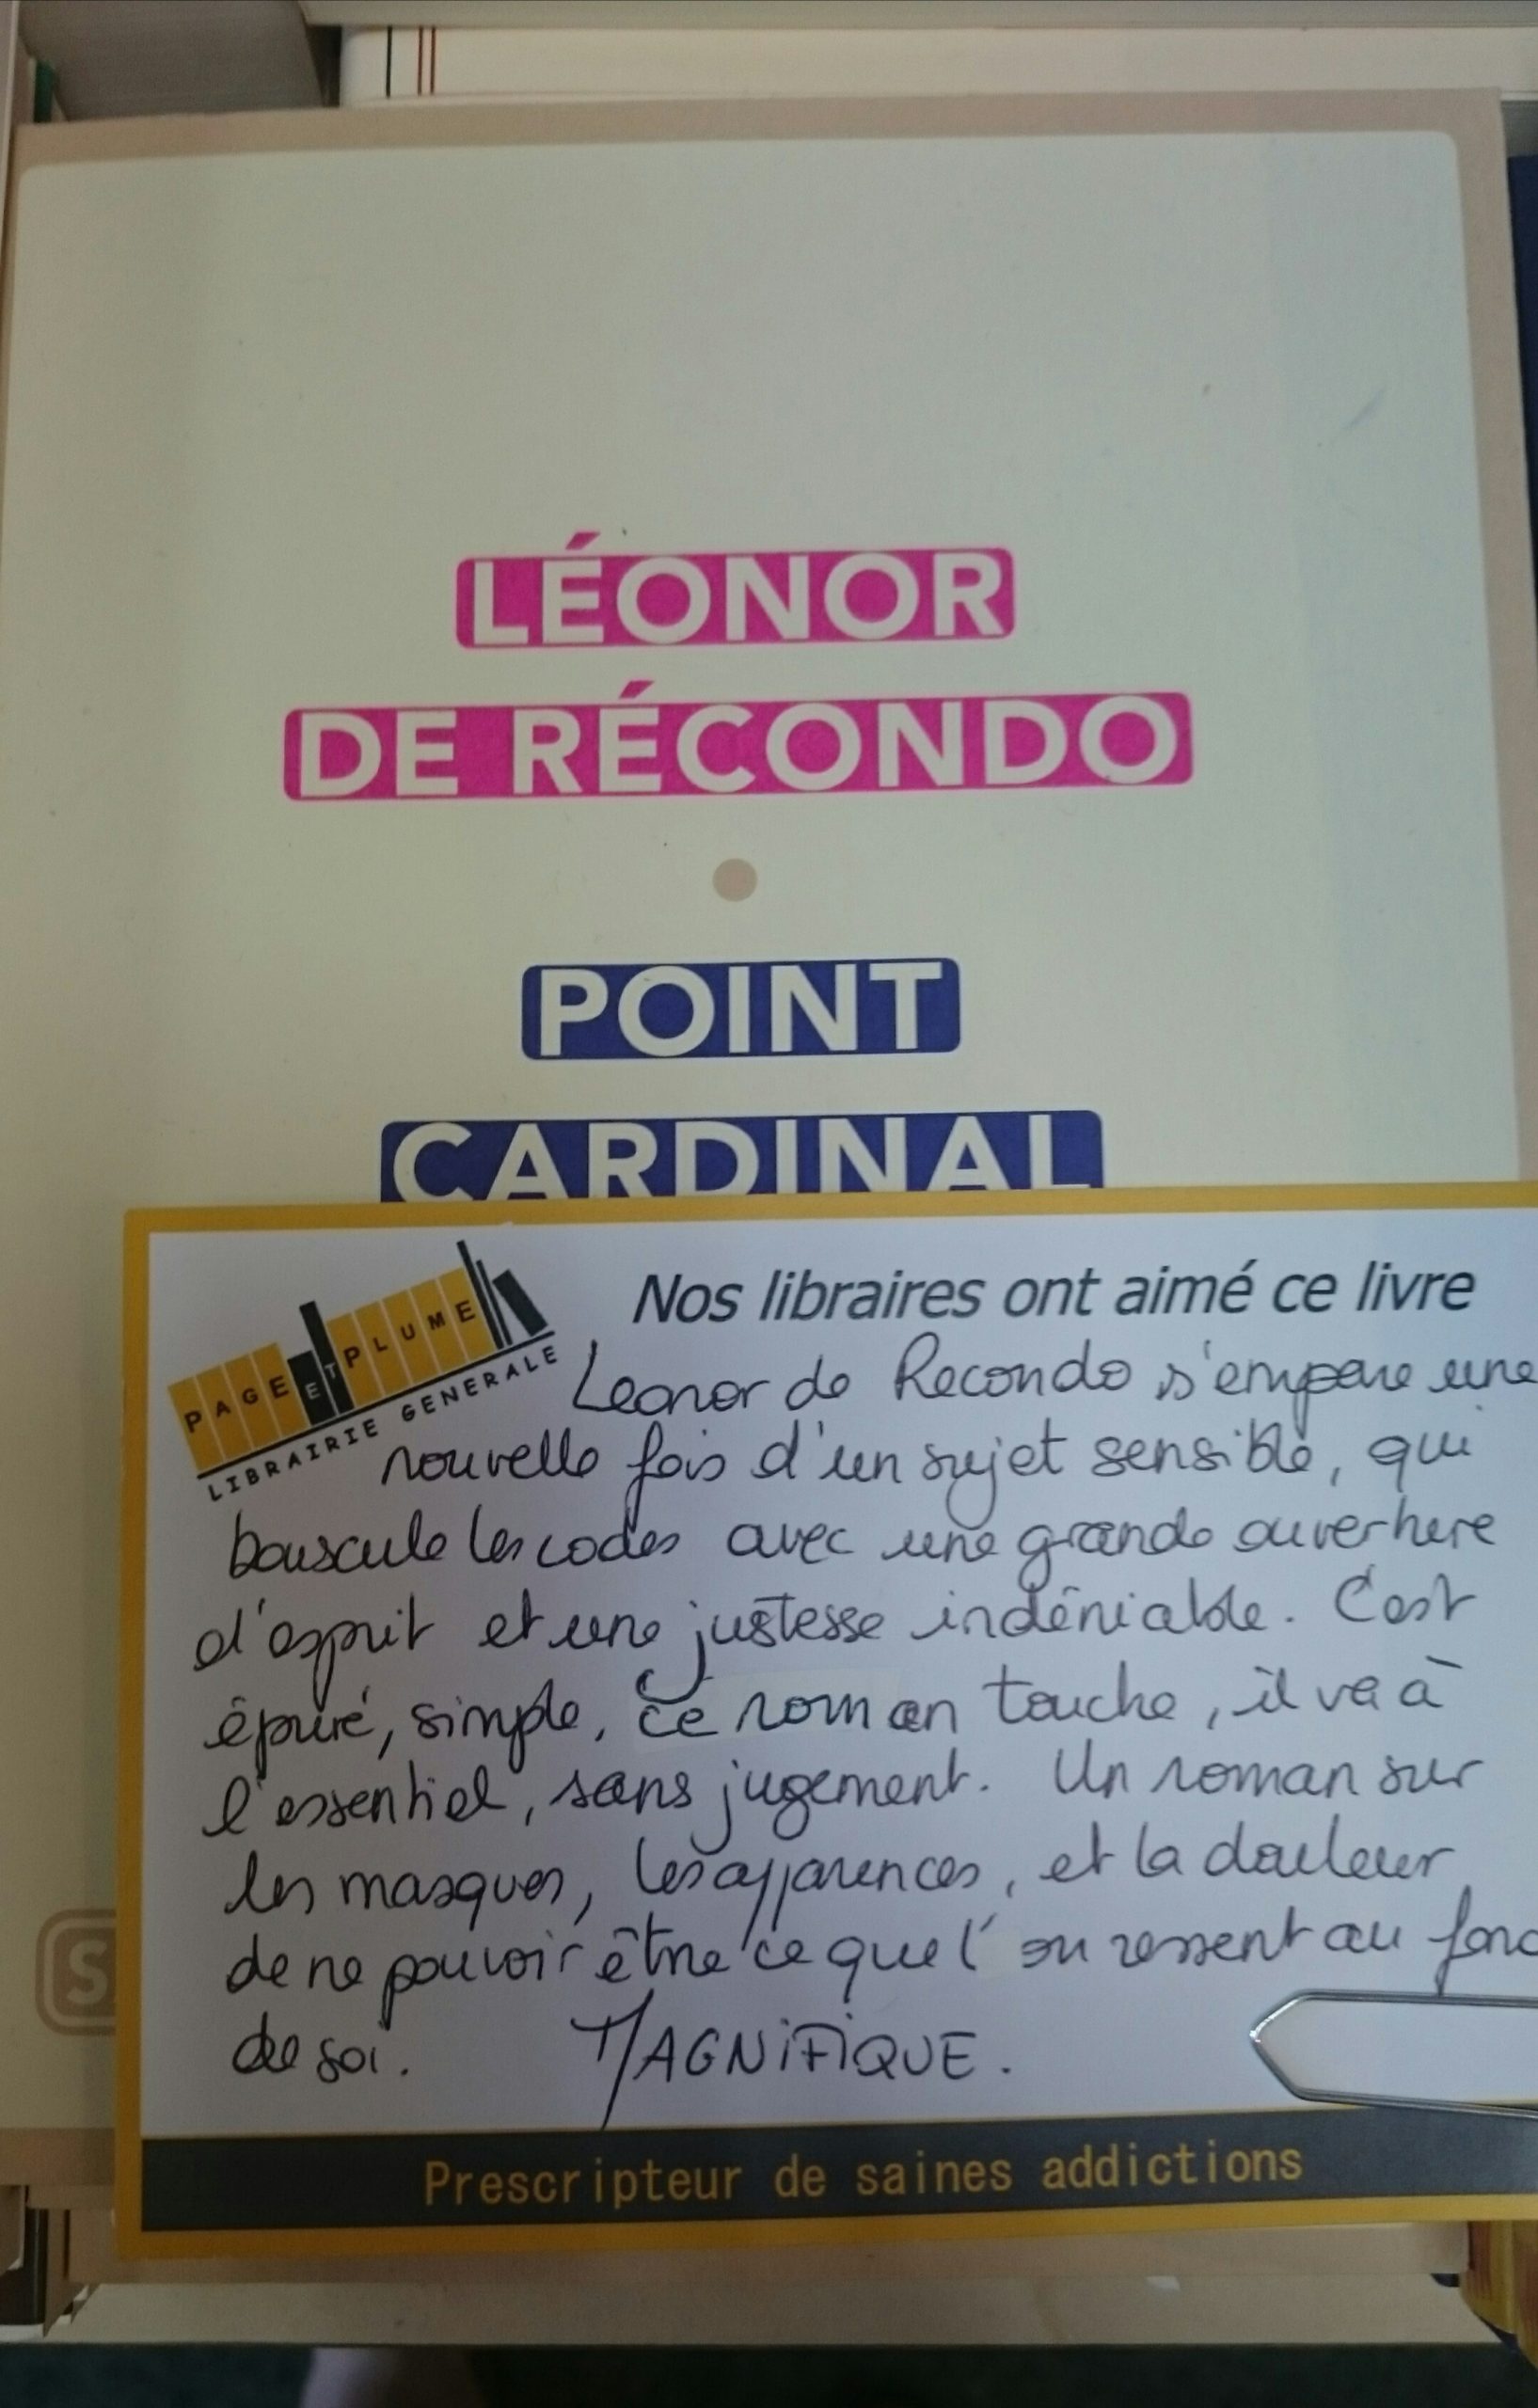 LÉONOR
DE RÉCONDO
POINT
CARDINAL
PAGE ET PLUME
LIBRAIRIE GENERALE
Nos libraires ont aimé ce livre
Leonor de Recondo s'empare une
nouvelle fois d'un sujet sensible, qui
bouscule les codes avec une grande ouverture
d'esprit et une justesse indéniable. C'est
épuré, simple, ce roman touche, il va à
l'essentiel, sans jugement. Un roman sur
les masques, les apparences, et la douleur
de ne pouvoir être ce que l'on ressent au fond
de soi. MAGNIFIQUE.
S
Prescripteur de saines addictions